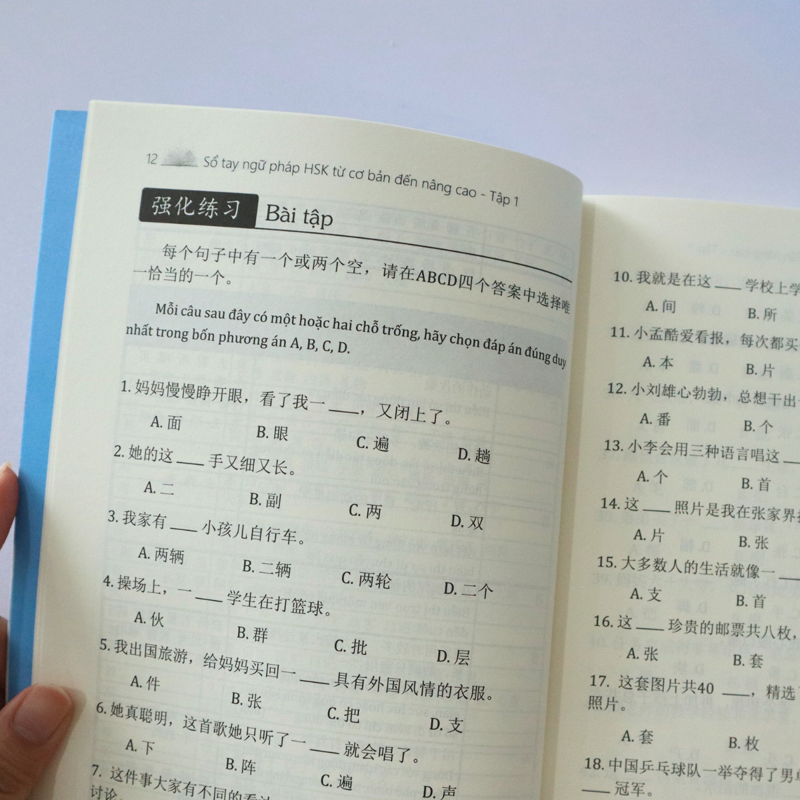 12 Sổ tay ngữ pháp HSK từ cơ bản đến nâng cao - Tập 1
强化练习 Bài tập
每个句子中有一个或两个空，请在ABCD四个答案中选择唯
一恰当的一个。
Mỗi câu sau đây có một hoặc hai chỗ trống, hãy chọn đáp án đúng duy
nhất trong bốn phương án A, B, C, D.
1. 妈妈慢慢睁开眼，看了我一 ____，又闭上了。
A. 面 B. 眼 C. 遍 D. 趟
2. 她的这 ____ 手又细又长。
A. 二 B. 副 C. 两 D. 双
3. 我家有 ____ 小孩儿自行车。
A. 两辆 B. 二辆 C. 两轮 D. 二个
4. 操场上，一 ____ 学生在打篮球。
A. 伙 B. 群 C. 批 D. 层
5. 我出国旅游，给妈妈买回一 ____ 具有外国风情的衣服。
A. 件 B. 张 C. 把 D. 支
6. 她真聪明，这首歌她只听了一 ____ 就会唱了。
A. 下 B. 阵 C. 遍 D. 声
7. 这件事大家有不同的看法
讨论。
10. 我就是在这 ____ 学校上学
A. 间 B. 所
11. 小孟酷爱看报，每次都买
A. 本 B. 片
12. 小刘雄心勃勃，总想干出
A. 番 B. 个
13. 小李会用三种语言唱这 ____
A. 个 B. 首
14. 这 ____ 照片是我在张家界
A. 片 B. 张
15. 大多数人的生活就像一 ____
A. 支 B. 首
16. 这 ____ 珍贵的邮票共八枚，
A. 张 B. 套
17. 这套图片共40 ____，精选
照片。
A. 套 B. 枚
18. 中国乒乓球队一举夺得了男单
____ 冠军。